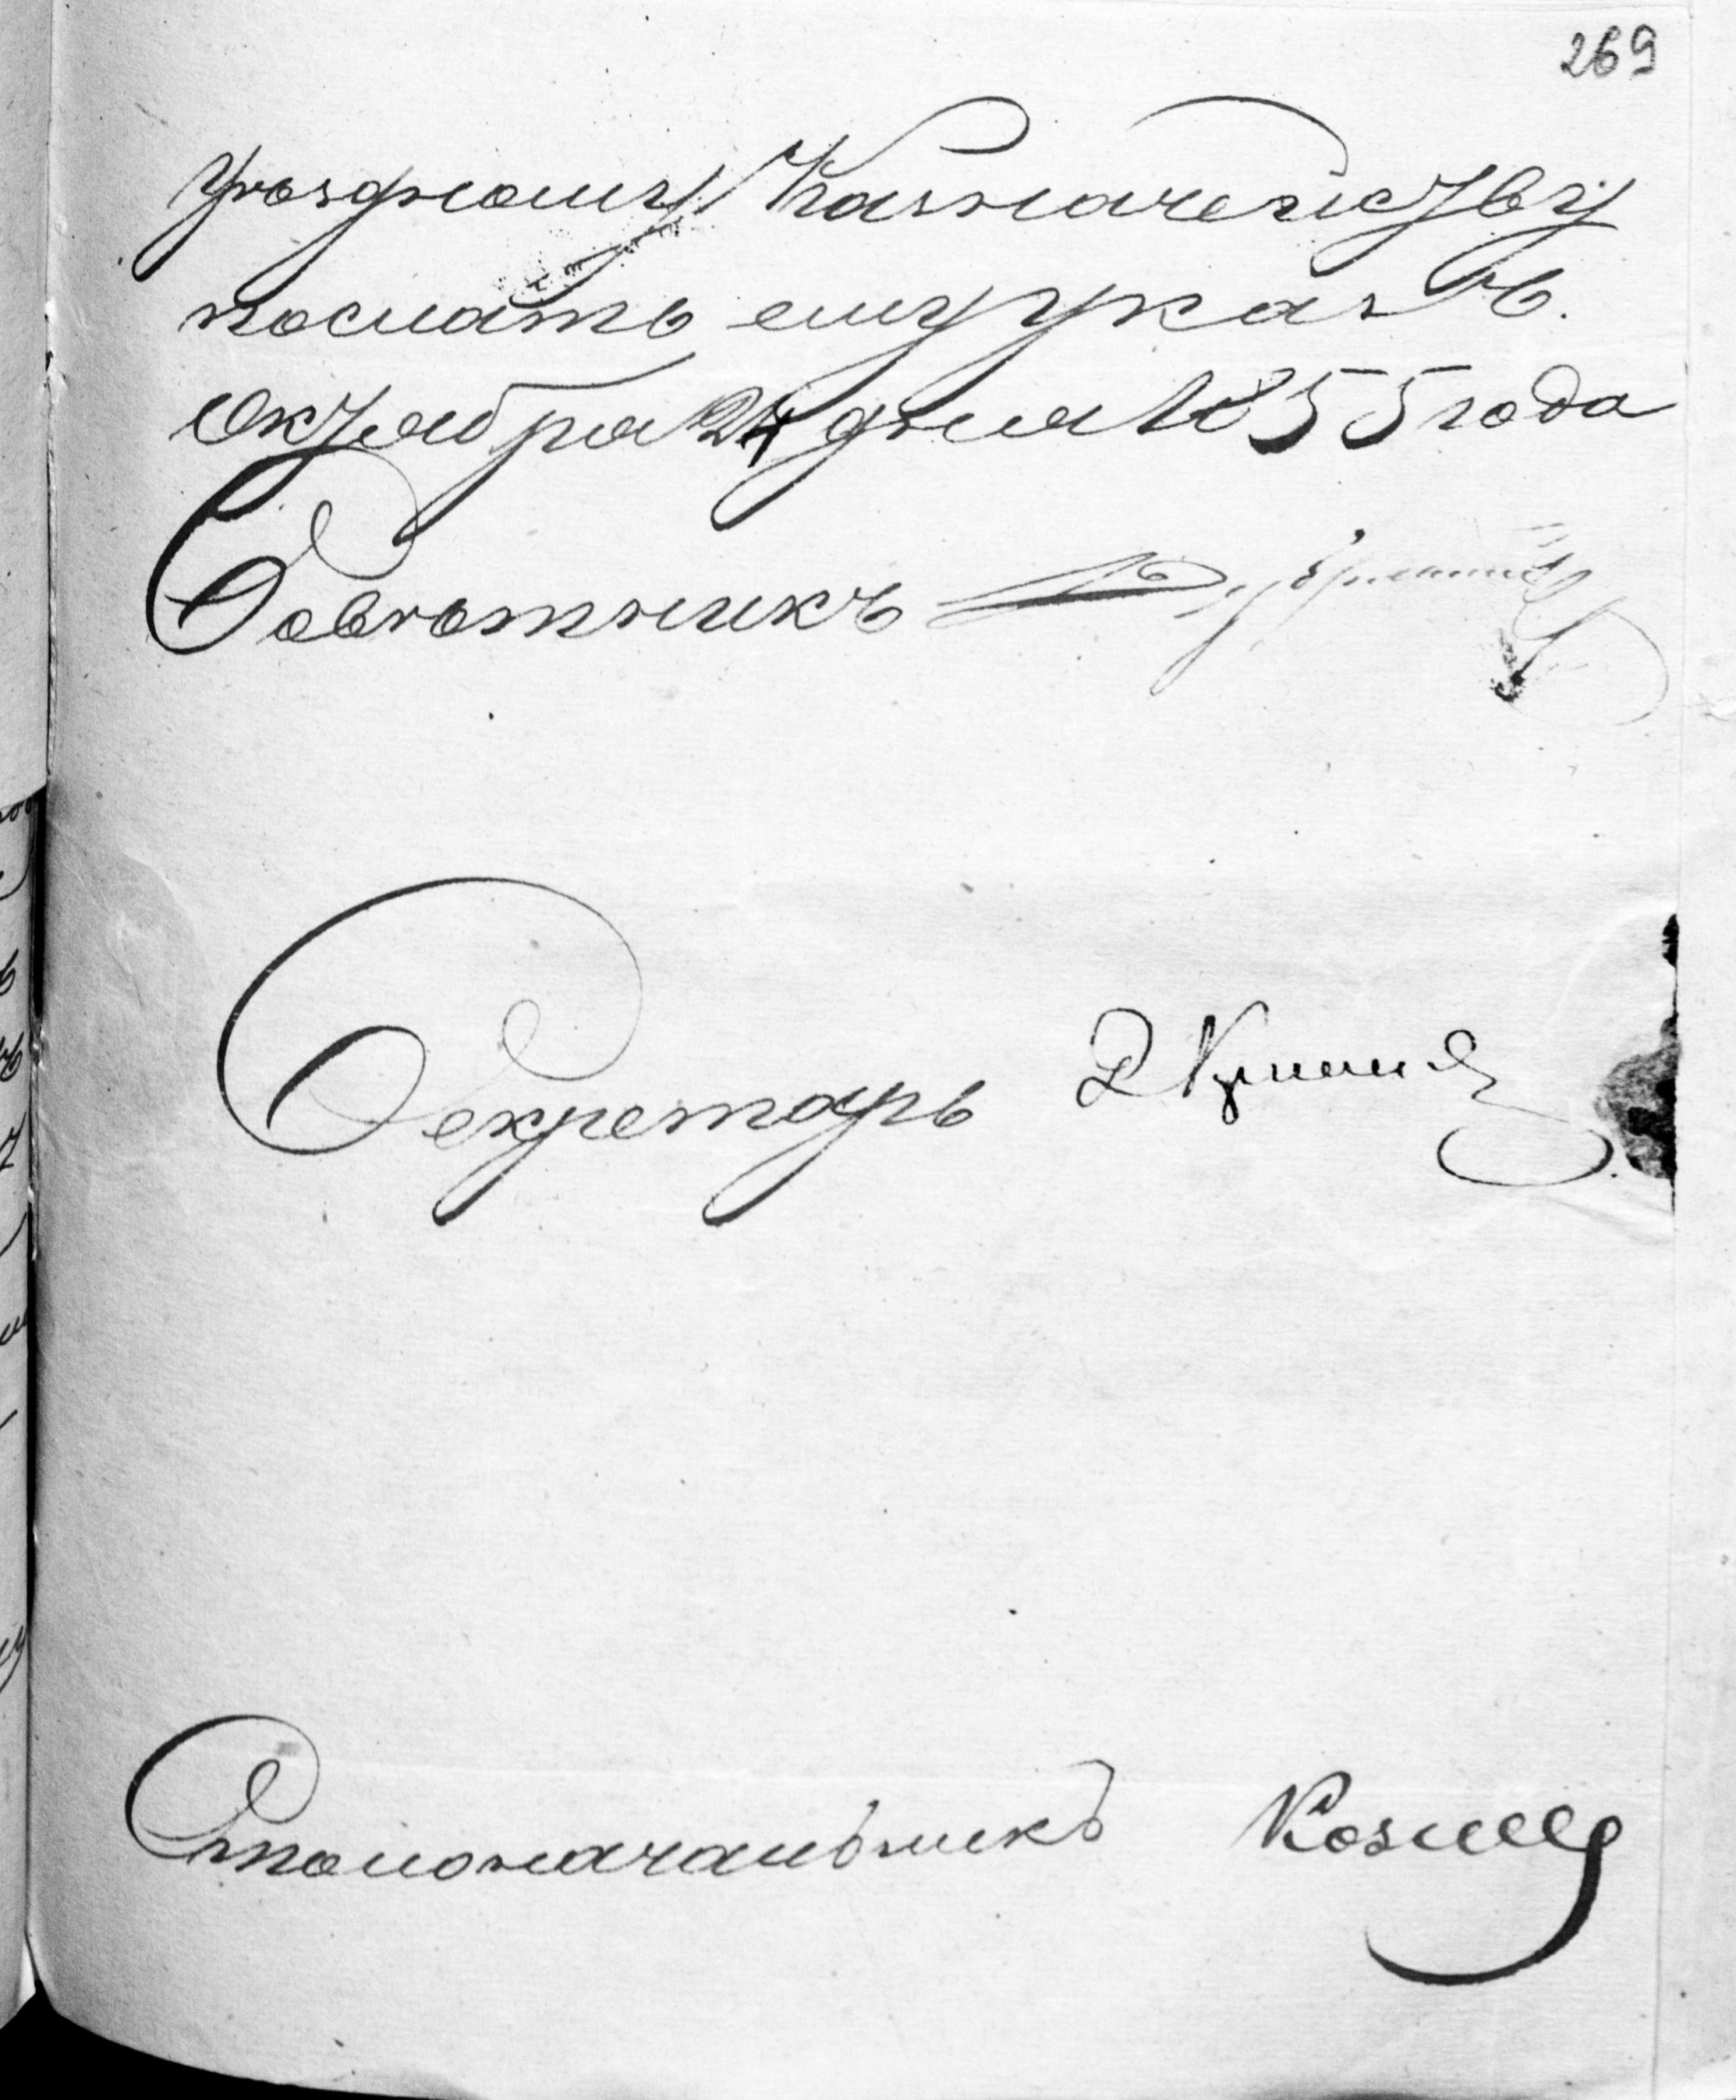 269
Уѣздному Казначейству
послать ему указъ.
Октября 24 дня 1855 года
Совѣтникъ
Секретарь
Столоначальникъ